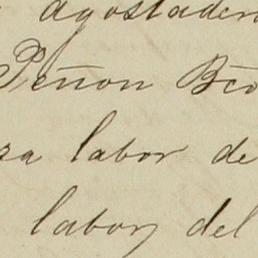 agostadero
Peñon Bco
sa labor de
labor del